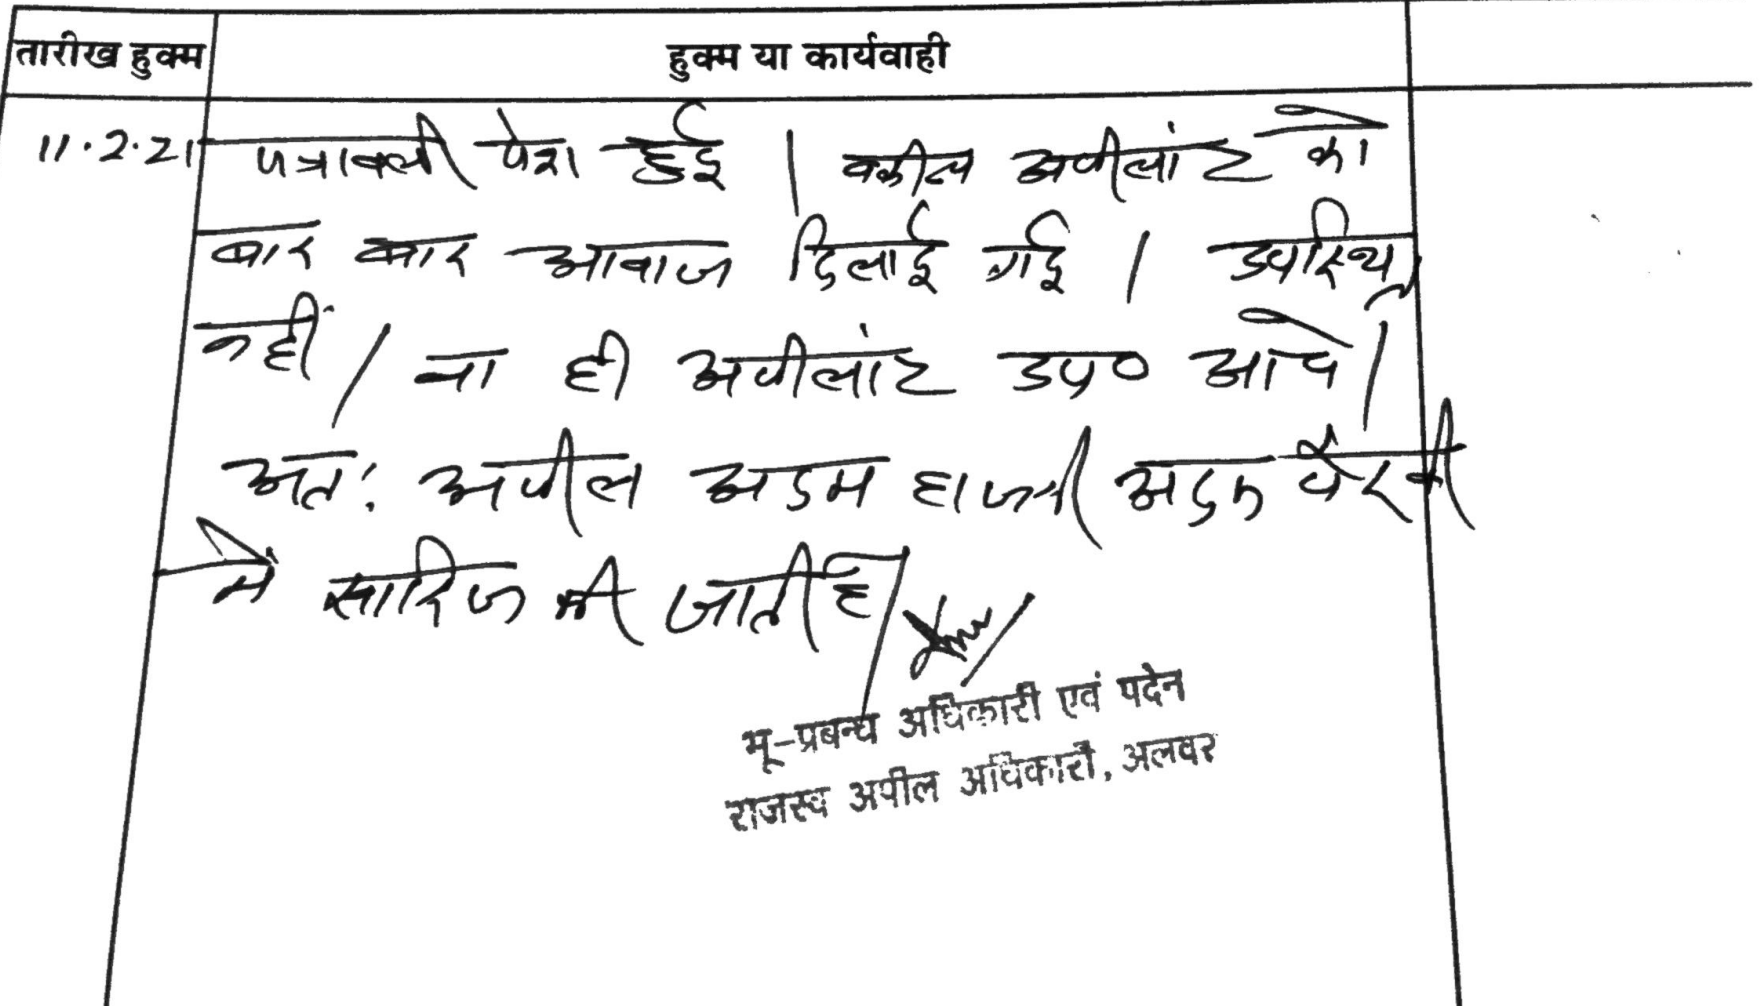 तारीख हुक्म हुक्म या कार्यवाही
11.2.21 पत्रावली पेश हुई । वकील अपीलांट को
बार बार आवाज दिलाई गई । उपस्थित
नहीं । ना ही अपीलांट उप० आये ।
अतः अपील अदम हाजरी अदम पैरवी
में खारिज की जाती है ।
भू-प्रबन्ध अधिकारी एवं पदेन
राजस्व अपील अधिकारी, अलवर